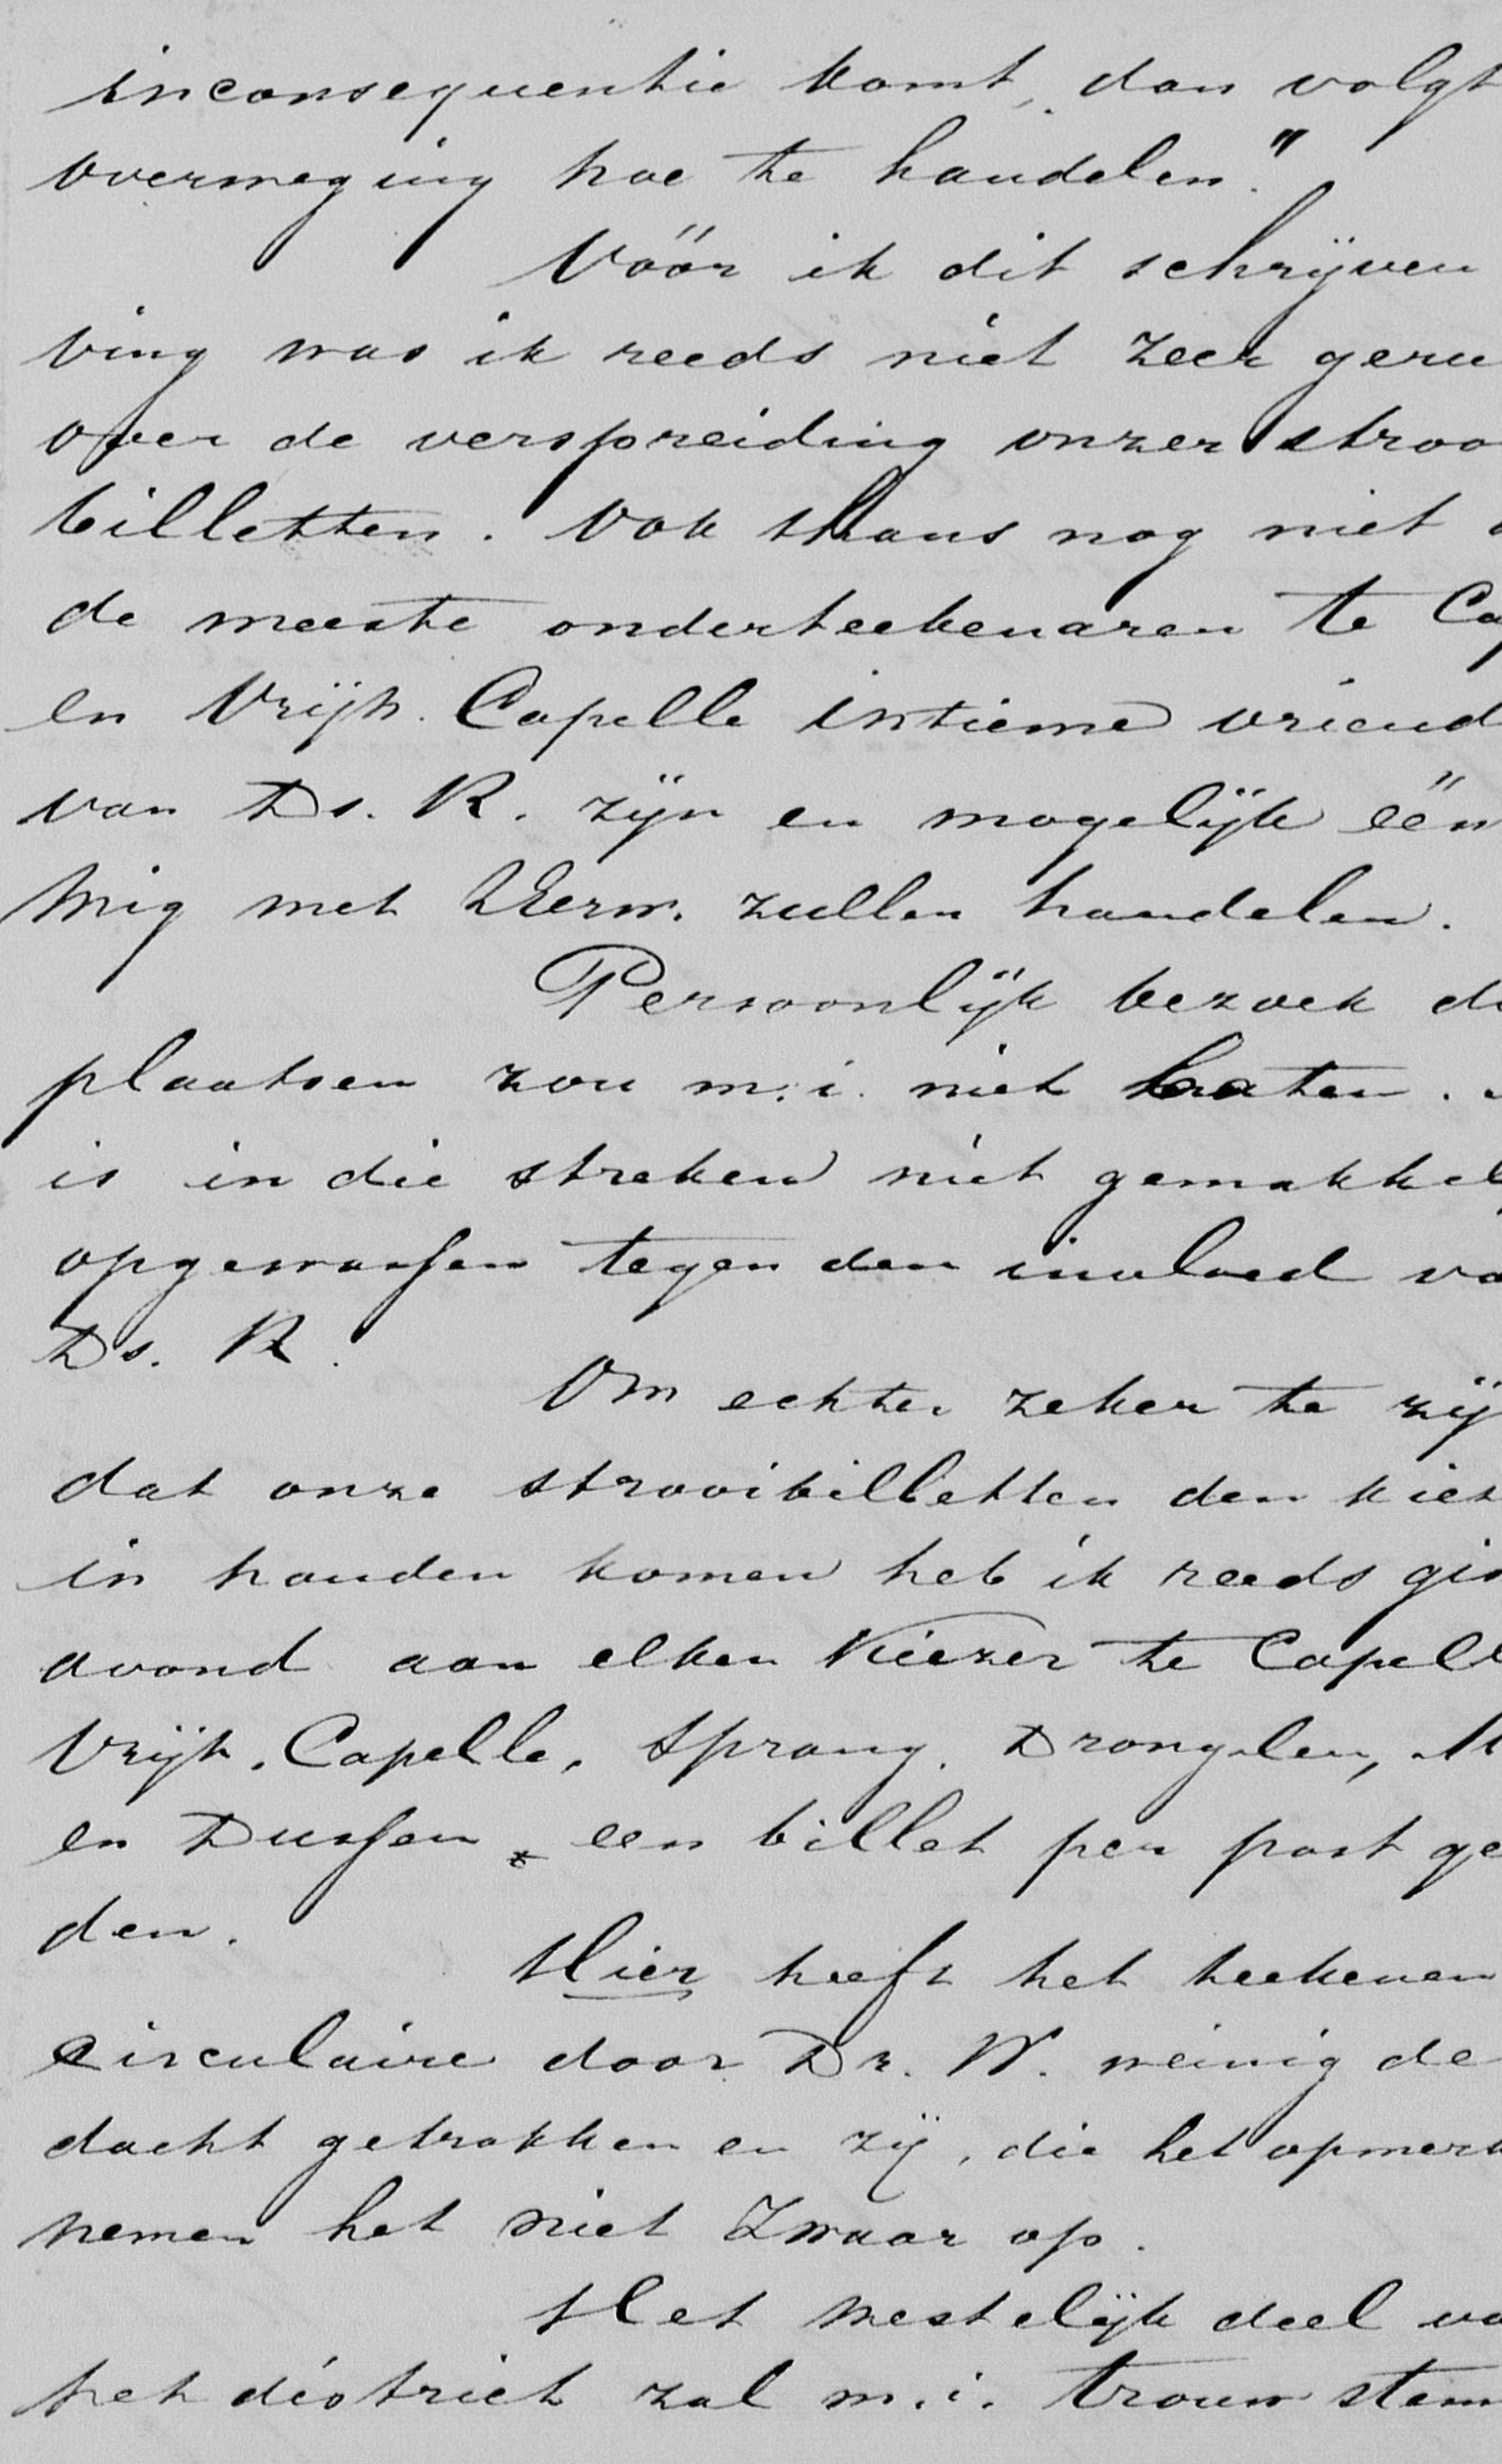 inconsequentie komt, dan volgt
overweging hoe te handelen."
Vóór ik dit schrijven
ving was ik reeds niet zeer geru
over de verspreiding onzer strooi
billetten. Ook thans nog niet
de meeste onderteekenaren te Cap
en Vrijh. Capelle intieme vriend
van Ds. R. zijn en mogelijk één
mig met Werw. zullen handelen.
Persoonlijk bezoek di
plaatsen zou m.i. niet baten.
is in die streken niet gemakkel
opgewassen tegen den invloed va
Ds. R.
Om echter zeker te zij
dat onze strooibilletten den kiez
in handen komen heb ik reeds gis
avond aan elken Kiezer te Capell
Vrijh. Capelle, Sprang, Drongelen, M
en Dussen een billet per post ge
den.
Hier heeft het teekenen
circulaire door Dr. W. weinig de
dacht getrokken en zij, die het opmerk
nemen het niet zwaar op.
Het westelijk deel va
het district zal m.i. trouw stem